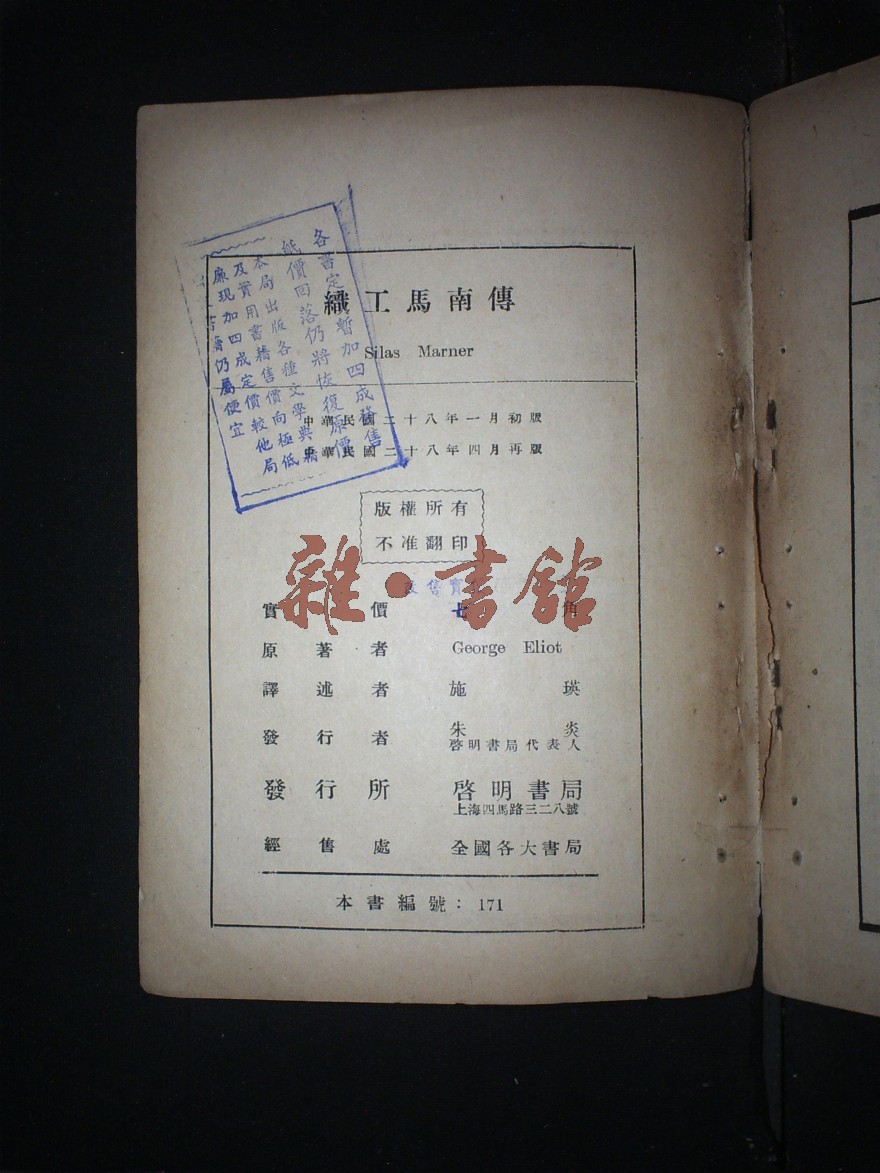 織工馬南傳
Silas Marner
中華民國二十八年一月初版
中華民國二十八年四月再版
版權所有
不准翻印
改售實
實價七角
原著者 George Eliot
譯述者 施瑛
發行者 朱炎
啓明書局代表人
發行所 啓明書局
上海四馬路三二八號
經售處 全國各大書局
本書編號：171
本局出版各種文學典籍
及實用書籍售價向極低
廉現加四成定價較他局
書籍仍屬便宜
紙價回落仍將恢復原價
各書定暫加四成發售
雜·書館